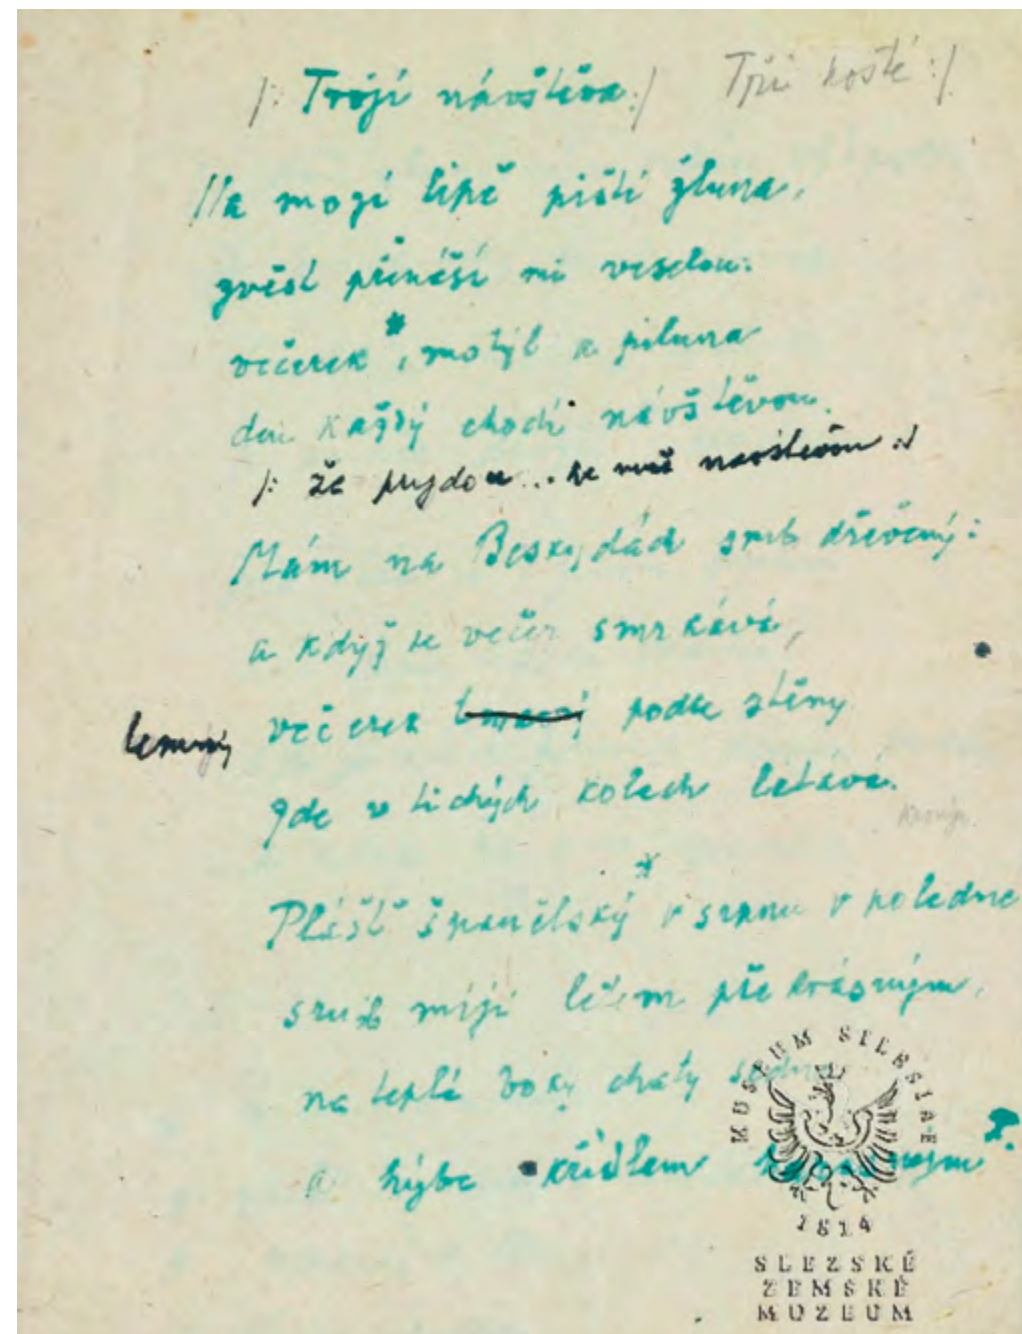 /: Trojí návštěva :/ Tři hosté :/
Na mojí lípě piští žluna,
zvěst přináší mi veselou:
večerek*, motýl a piluna
den každý chodí návštěvou.
/: že přijdou .. ke mně návštěvou :/
Mám na Beskydách srub dřevěný:
a když se večer smrkává,
večerek tmavý podle stěny
temný
zde v tichých kolech létává.
Plášť španělský* v srpnu v poledne
srub míjí letem překrásným,
na teplé boky chaty sedne
a hýbe křídlem
MUSEUM SILESIAE
1814
SLEZSKÉ
ZEMSKÉ
MUZEUM